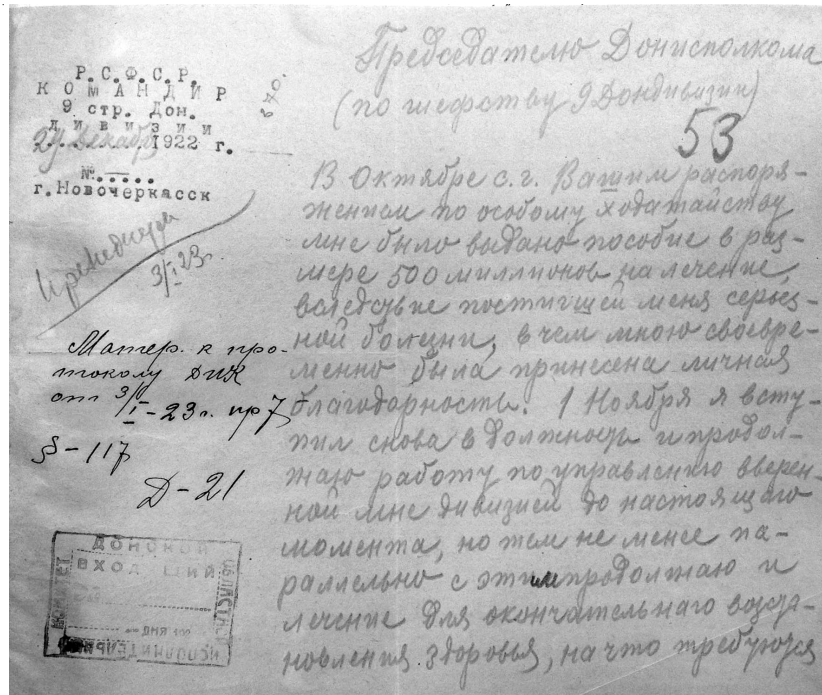 Р.С.Ф.С.Р.
КОМАНДИР
9 стр. Дон.
дивизии
29 Декабря 1922 г.
№.....
г.Новочеркасск
870.
3/I 23г.
Матер. к про-
токолу ДИК
от 3/I-23г. пр 7
§-117
Д-21
ДОНСКОЙ
ОБЛАСТН
ВХОД ЩИЙ
ДНЯ 192
ИСПОЛНИТЕЛЬН
Председателю Донисполкома
(по шефству 9 Дондивизии)
53
В Октябре с.г. Вашим распоря-
жением по особому ходатайству
мне было выдано пособие в раз-
мере 500 миллионов на лечение,
вследствие постигшей меня серьез-
ной болезни, в чем мною своевре-
менно была принесена личная
благодарность. 1 Ноября я всту-
пил снова в должность и продол-
жаю работу по управлению вверен-
ной мне дивизией до настоящаго
момента, но тем не менее па-
раллельно с этим продолжаю и
лечение для окончательнаго возста-
новления здоровья, на что требуются